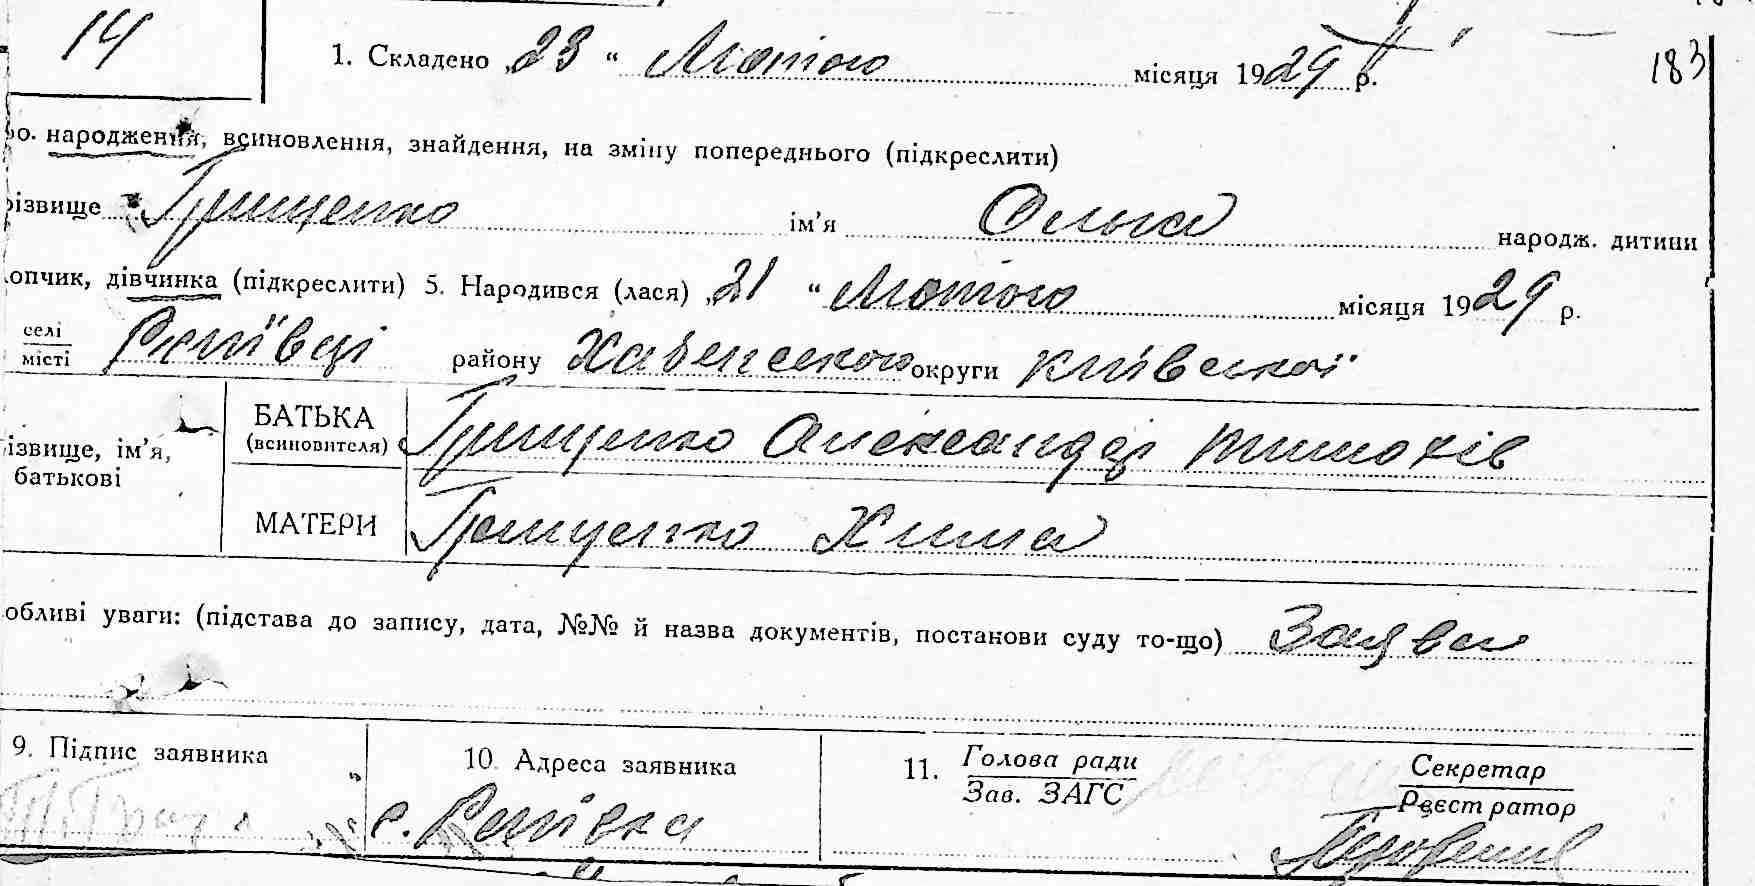 14
1. Складено „23 “ Лютого місяця 1929 р.
183
ро. народження, всиновлення, знайдення, на зміну попереднього (підкреслити)
різвище Грищенко ім’я Ольга народж. дитини
опчик, дівчинка (підкреслити) 5. Народився (лася) „21 “ Лютого місяця 1929 р.
селі
місті Репіївці району Хабенського округи Київської
ізвище, ім’я,
батькові
БАТЬКА
(всиновителя) Грищенко Олександр Тимохів
МАТЕРИ Грищенко Хима
обливі уваги: (підстава до запису, дата, №№ й назва документів, постанови суду то-що) Заява
9. Підпис заявника
10. Адреса заявника
с.
11. Голова ради
Зав. ЗАГС
Секретар
Реєстратор